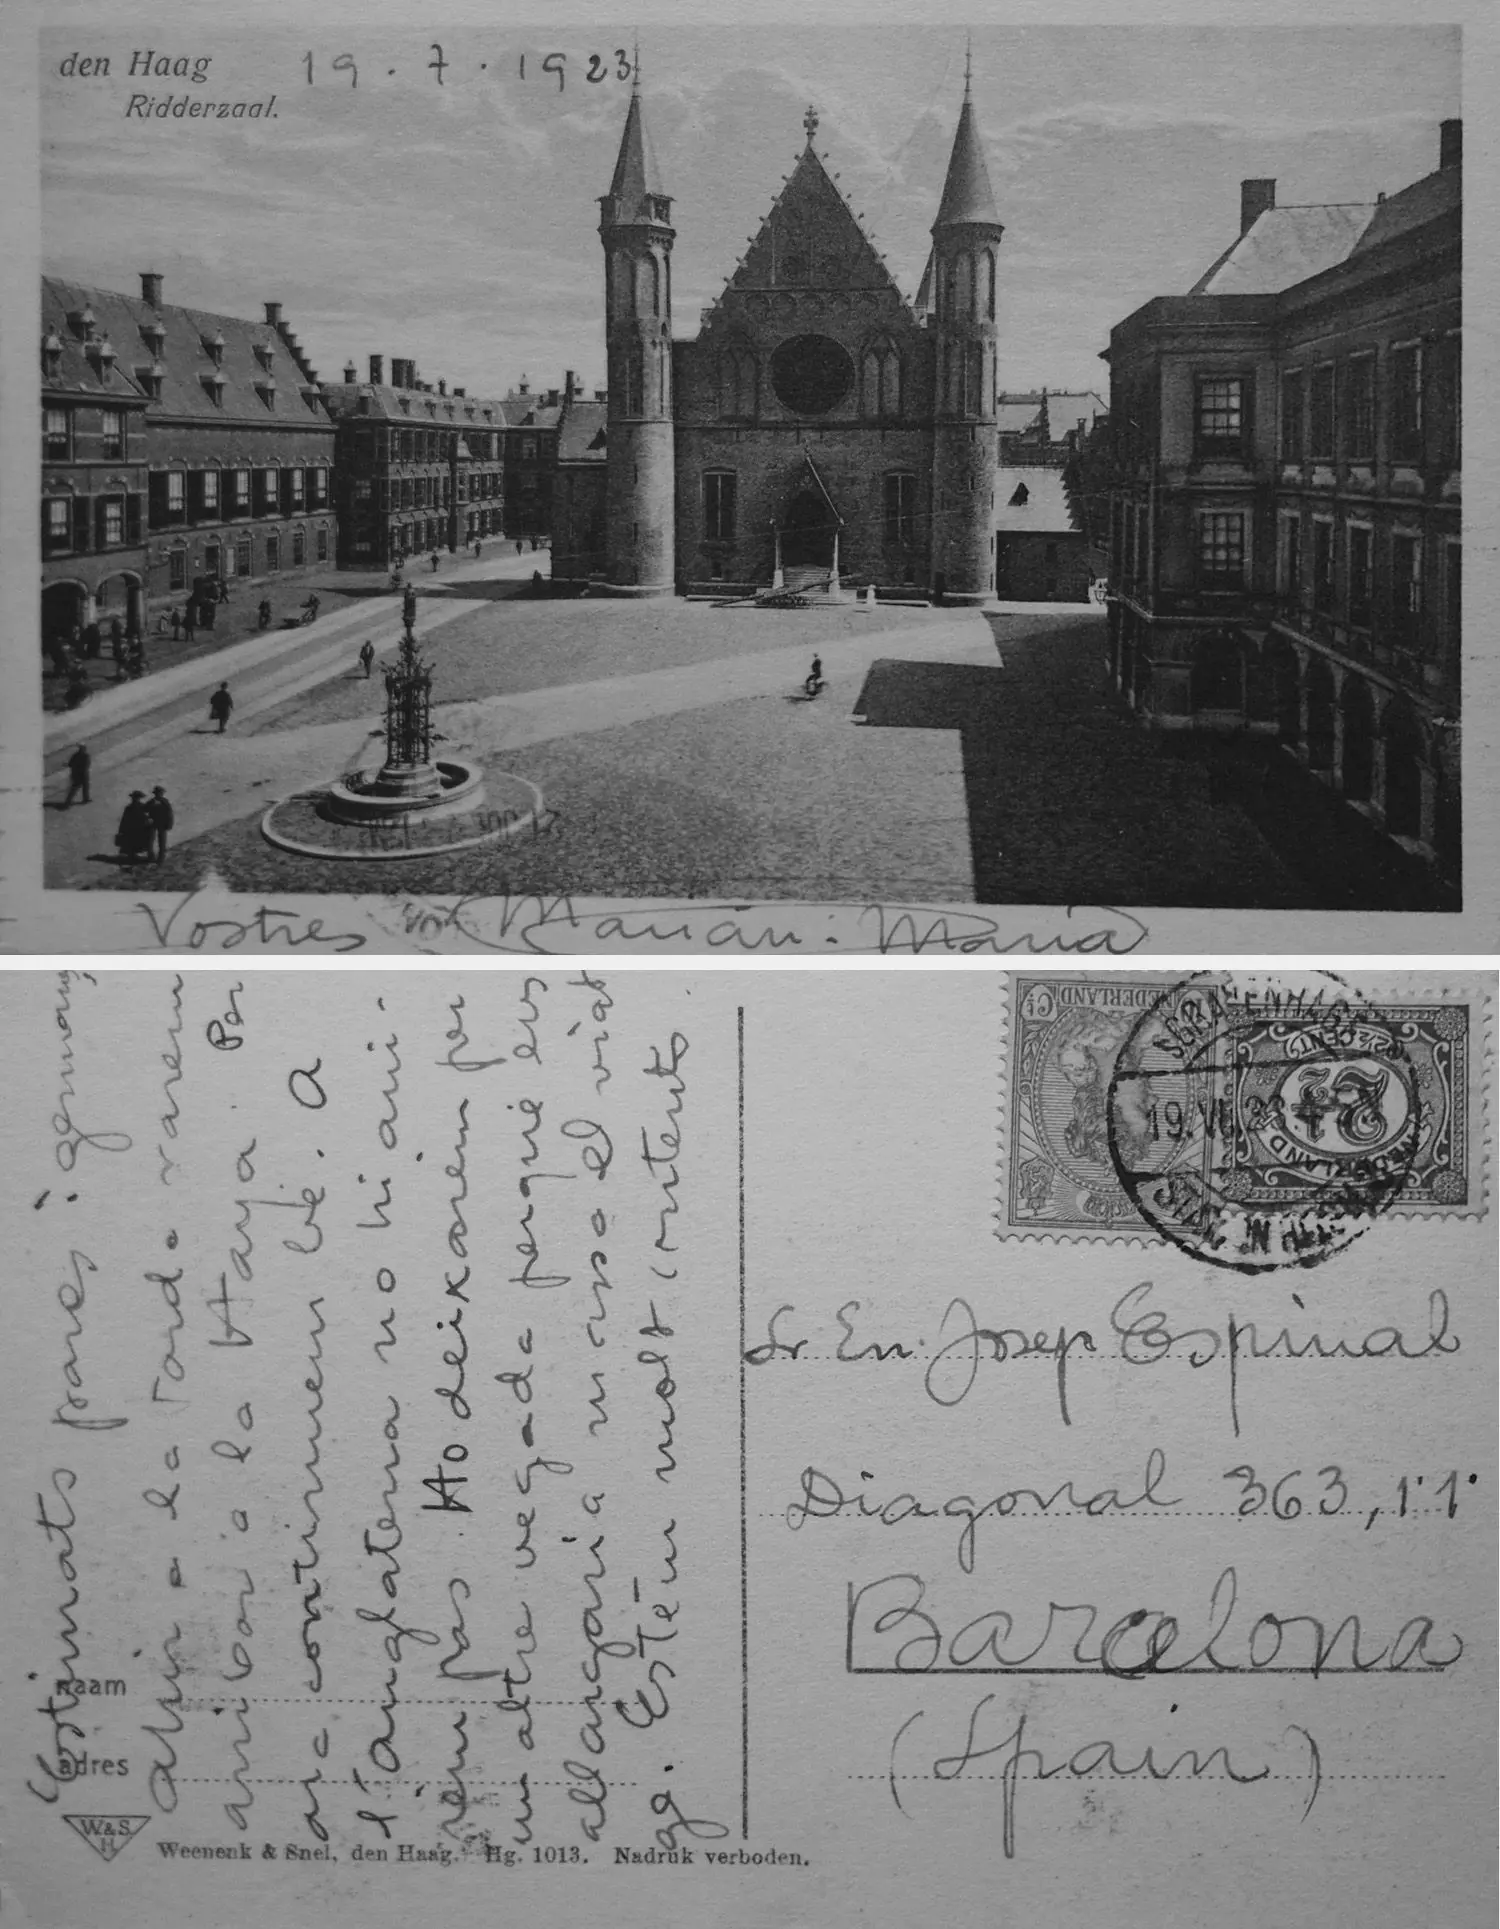 den Haag
Ridderzaal.
19.7.1923
Vostres Marian i Maria
Estimats pares i germans,
Ahir a la tarda varem
arribar a la Haya. Per
ara continuem bé. A
l'Anglaterra no hi ani-
rem pas. Ho deixarem per
un altre vegada perquè ens
allargaria massa el viat
ge. Estèm molt contents.
naam
adres
W&S.
H
Weenenk & Snel, den Haag. Hg. 1013. Nadruk verboden.
NEDERLAND
Ct
'SGRAVENHAGE
19.VII.23
2½ CENT
2½
NEDERLAND
Sr En. Josep Espinal
Diagonal 363, 1r 1a
Barcelona
(Spain)